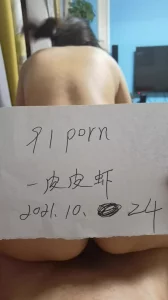 91 porn
一皮皮虾
2021.10. 24